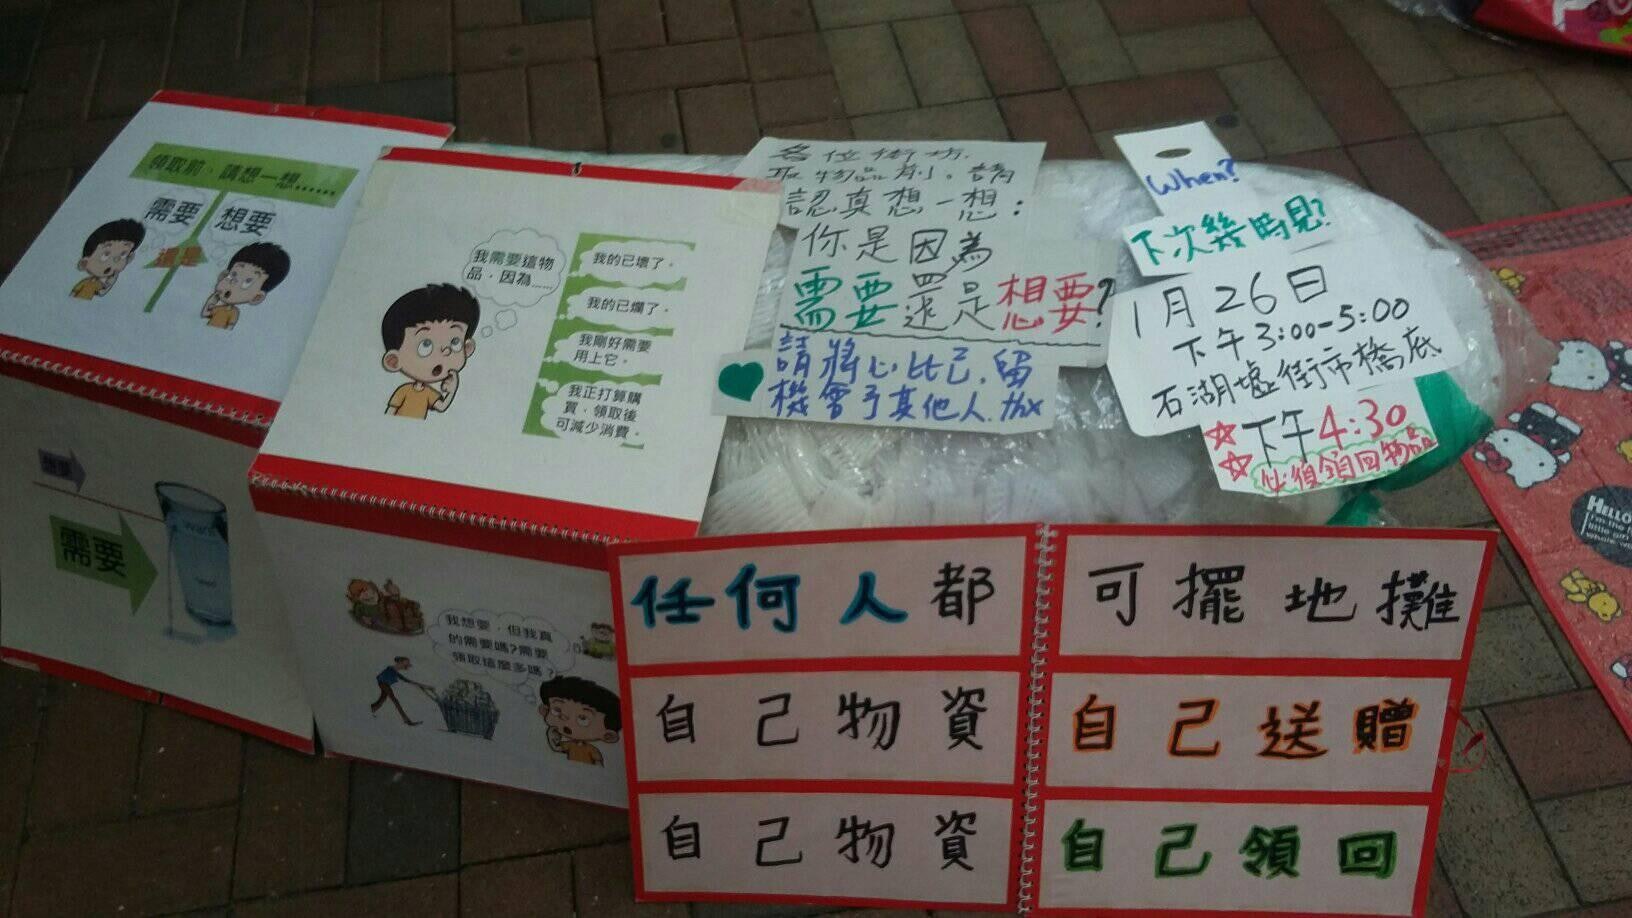 領取前，請想一想......
需要
想要
還是
需要
want
我需要這物
品，因為......
我的已壞了。
我的已爛了。
我剛好需要
用上它。
我正打算購
買，領取後
可減少消費。
我想要，但我真
的需要嗎?需要
領取這麼多嗎?
各位街坊，
取物品前。請
認真想一想：
你是因為
需要還是想要?
請將心比己，留
機會予其他人，thx
When?
下次幾時見?
1月26日
下午3:00-5:00
石湖墟街市橋底
下午4:30
必須領回物品
任何人都可擺地攤
自己物資自己送贈
自己物資自己領回
HELLO
I'm the
little girl
whole wor